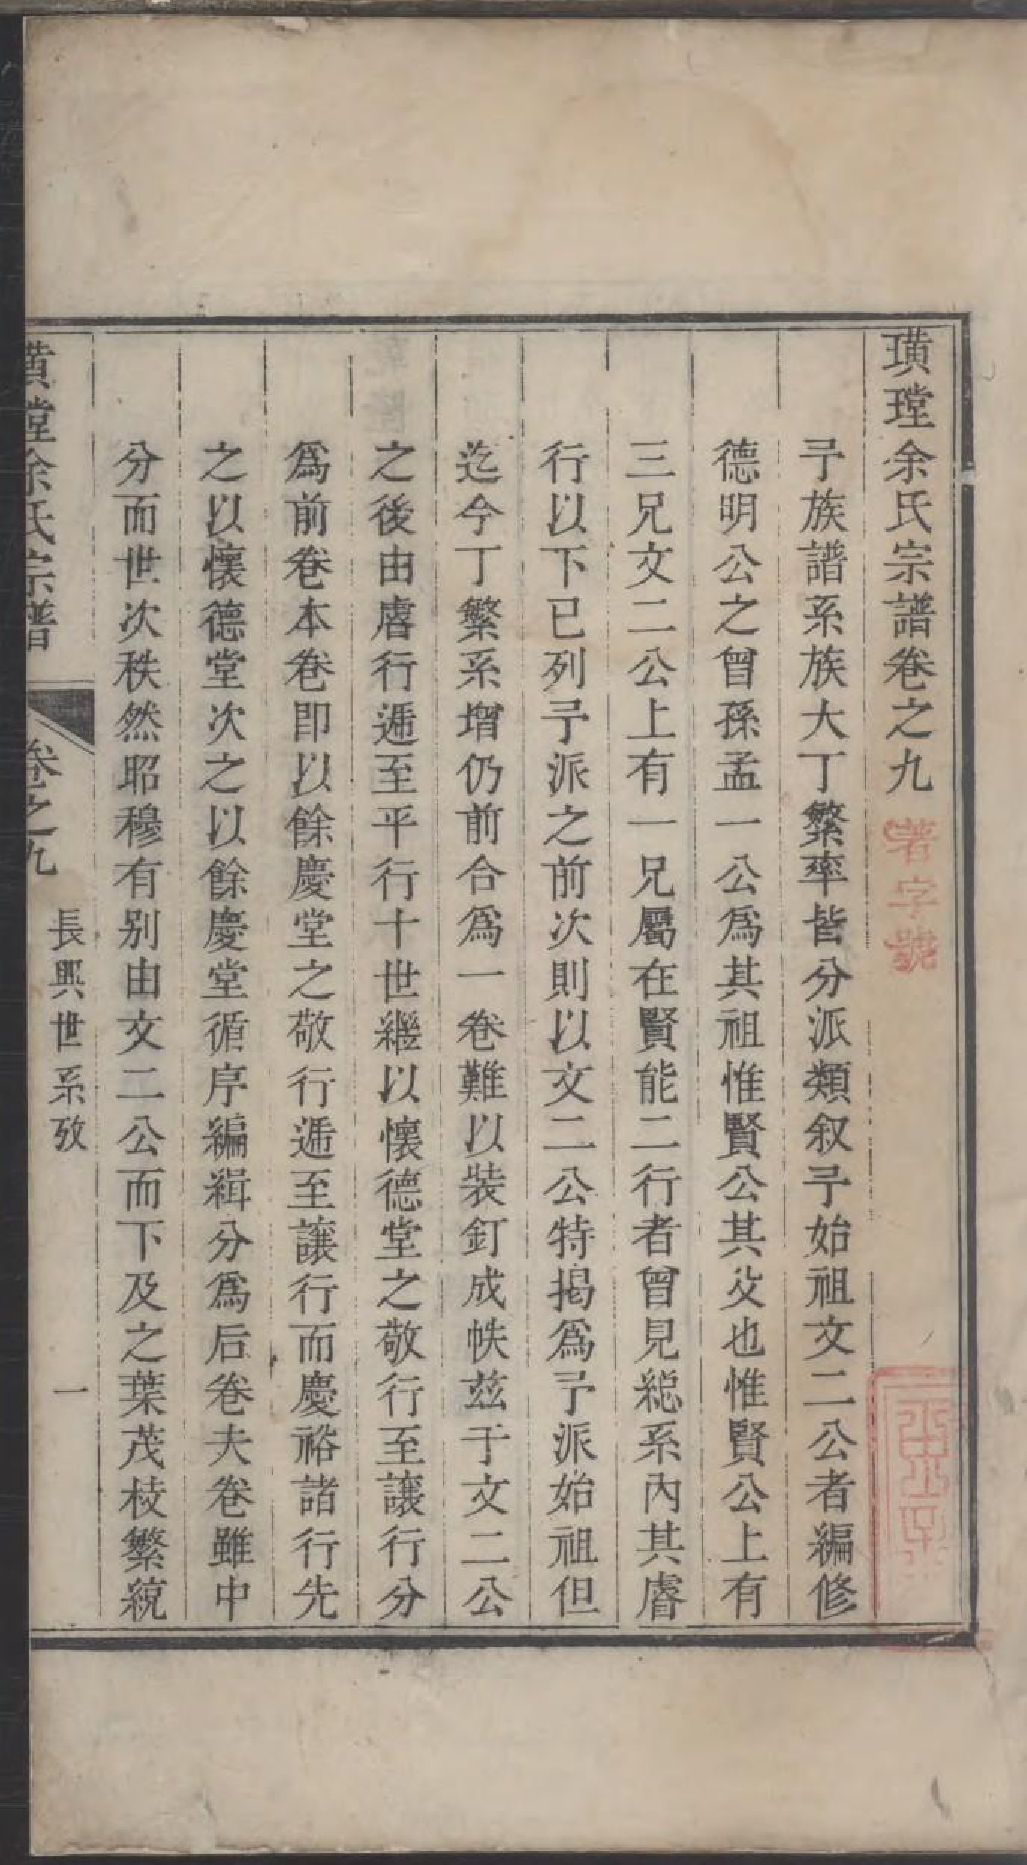 璜瑝余氏宗譜卷之九
著字號
予族譜系族大丁繁率皆分派類叙予始祖文二公者編修
德明公之曾孫孟一公為其祖惟賢公其父也惟賢公上有
三兄文二公上有一兄屬在賢能二行者曾見総系內其睿
行以下已列予派之前次則以文二公特揭為予派始祖但
迄今丁繁系增仍前合為一卷難以裝釘成帙茲于文二公
之後由睿行遞至平行十世繼以懷德堂之敬行至讓行分
為前卷本卷即以餘慶堂之敬行遞至讓行而慶裕諸行先
之以懷德堂次之以餘慶堂循序編緝分為后卷夫卷雖中
分而世次秩然昭穆有別由文二公而下及之葉茂枝繁統
璜瑝余氏宗譜
卷之九
長興世系攷
一